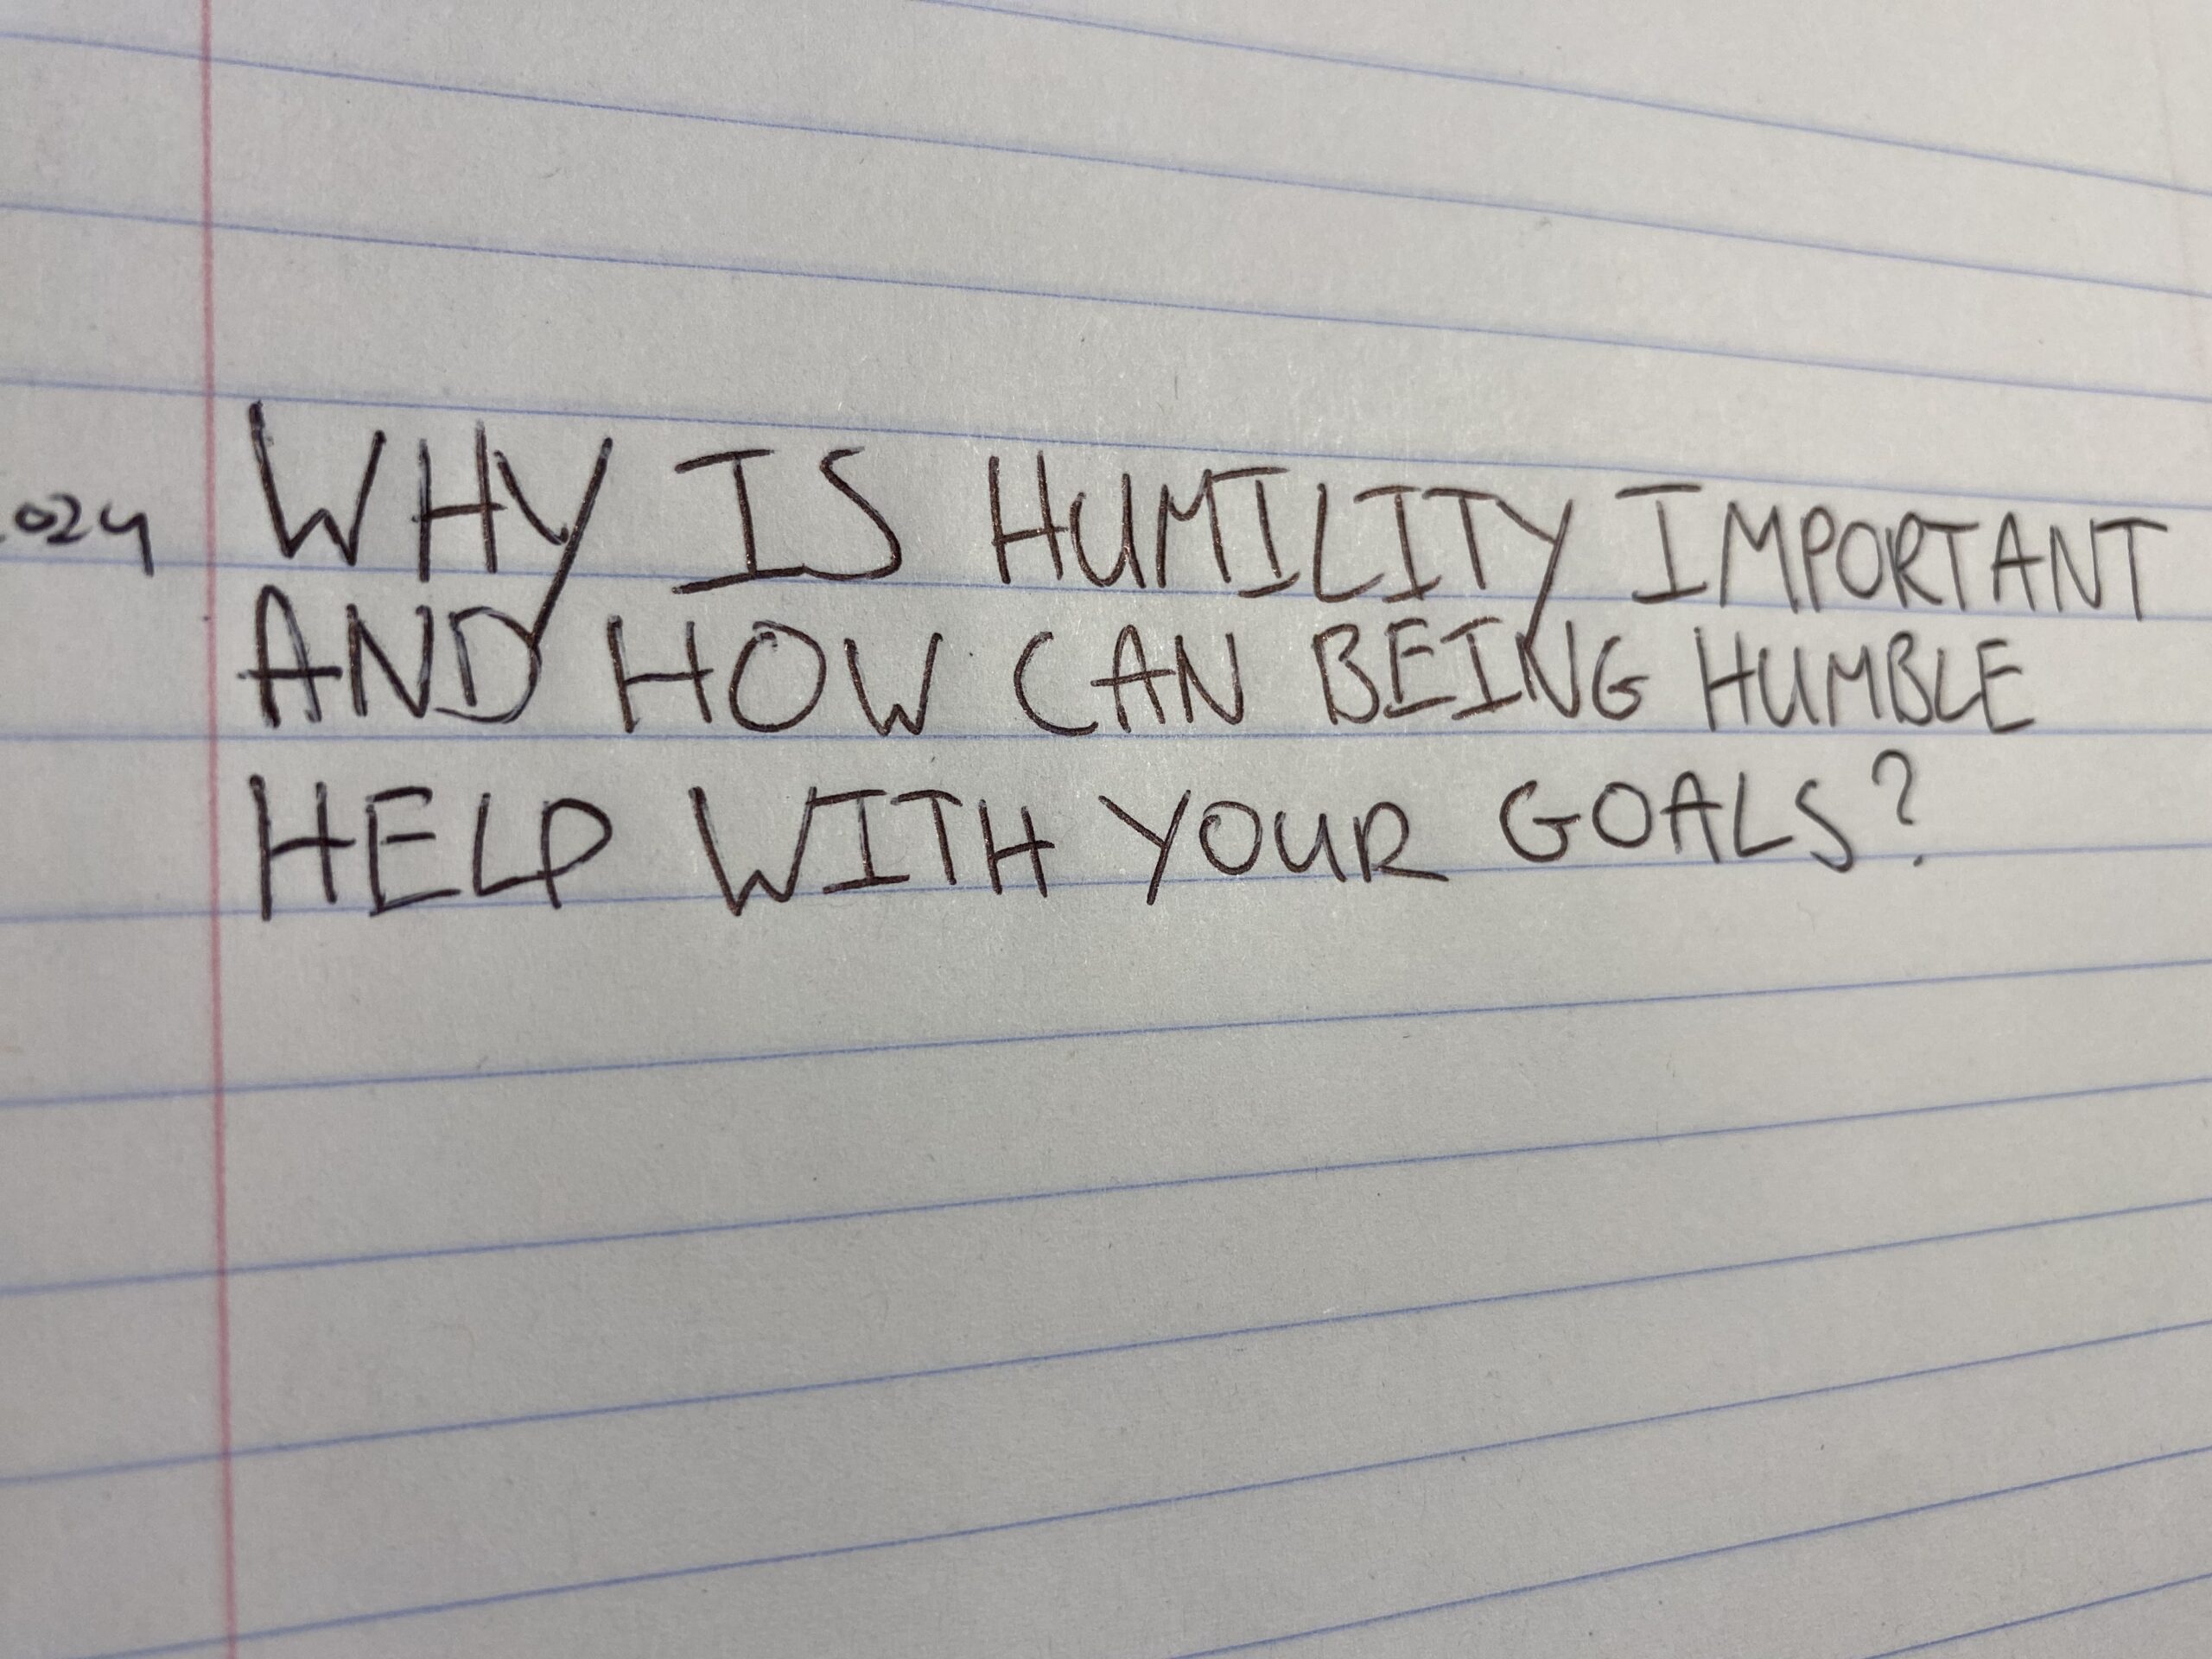 024 WHY IS HUMILITY IMPORTANT
AND HOW CAN BEING HUMBLE
HELP WITH YOUR GOALS?